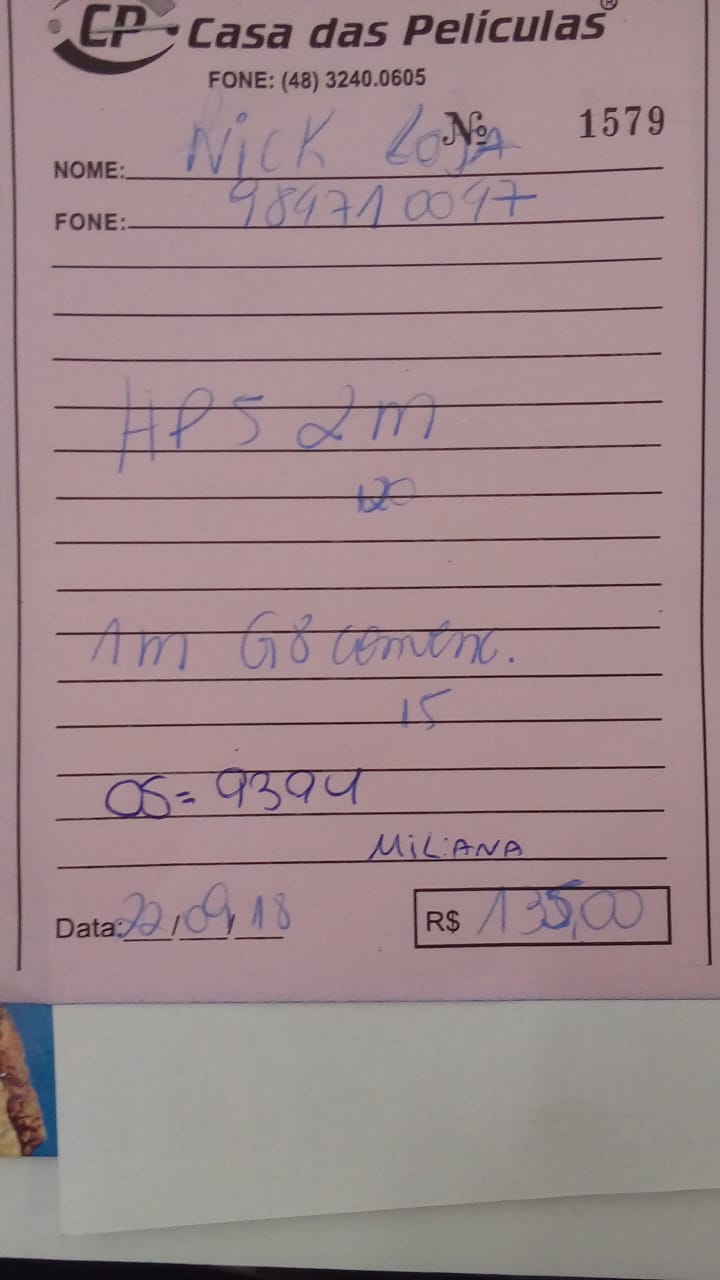 CP Casa das Películas®
FONE: (48) 3240.0605
Nº 1579
NOME: Nick Loja
FONE: 984710047
HP5 2m
120
1m G8 comenc.
15
OS= 9394
MILIANA
Data: 22/09/18 R$ 135,00